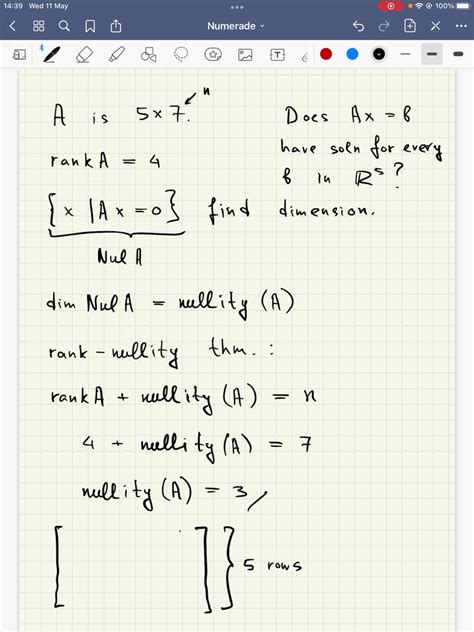 14:39 Wed 11 May
100%
Numerade
A is 5×7. n
Does Ax = b
have soln for every
b in ℝ⁵?
rank A = 4
{x | Ax = 0} find dimension.
Nul A
dim Nul A = nullity (A)
rank - nullity thm. :
rank A + nullity (A) = n
4 + nullity (A) = 7
nullity (A) = 3
5 rows